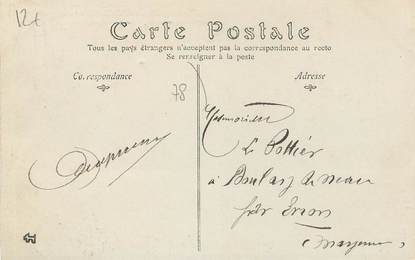 12t
Carte Postale
Tous les pays étrangers n'acceptent pas la correspondance au recto
Se renseigner à la poste
Correspondance
Adresse
78
Le Pottier
à
par Evron
(Mayenne)